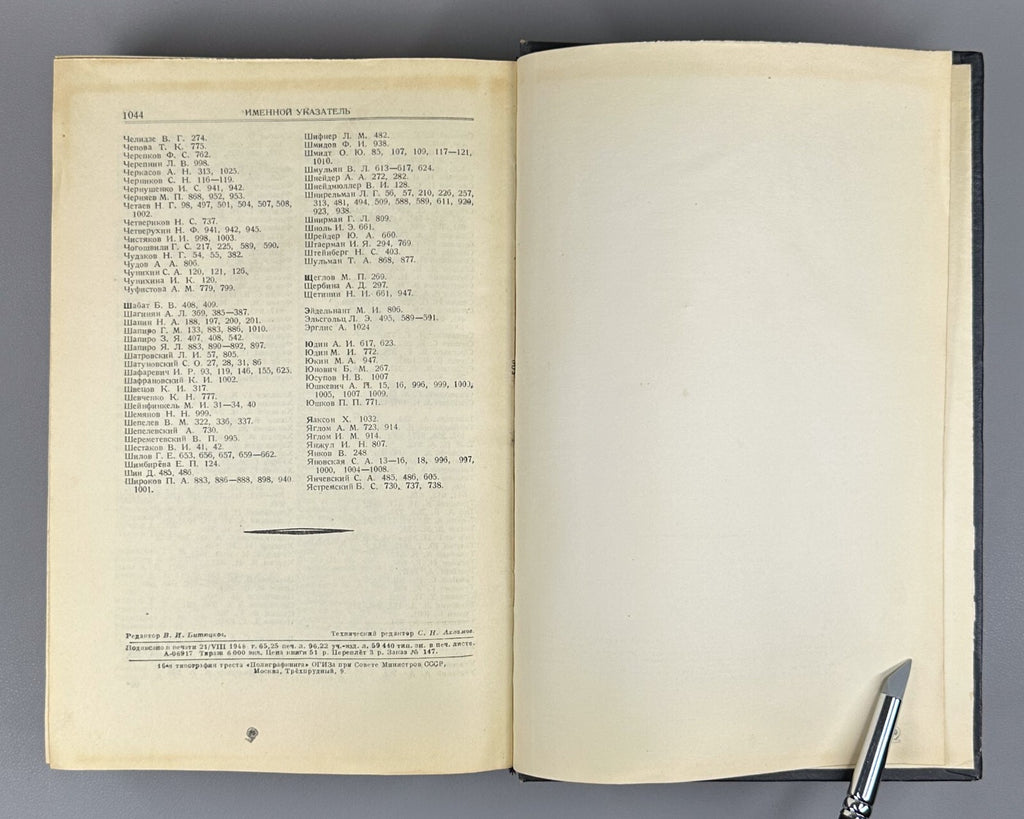 1044 ИМЕННОЙ УКАЗАТЕЛЬ
Челидзе В. Г. 274.
Чепова Т. К. 775.
Черепков Ф. С. 762.
Черепнин Л. В. 998.
Черкасов А. Н. 313, 1025.
Черников С. Н. 116—119.
Чернушенко И. С. 941, 942.
Черняев М. П. 868, 952, 953.
Четаев Н. Г. 98, 497, 501, 504, 507, 508,
1002.
Четвериков Н. С. 737.
Четверухин Н. Ф. 941, 942, 945.
Чистяков И. И. 998, 1003.
Чогошвили Г. С. 217, 225, 589, 590.
Чудаков Н. Г. 54, 55, 382.
Чудов А. А. 806.
Чунихин С. А. 120, 121, 126.
Чунихина И. К. 120.
Чуфистова А. М. 779, 799.
Шабат Б. В. 408, 409.
Шагинян А. Л. 369, 385—387.
Шанин Н. А. 188, 197, 200, 201.
Шапиро Г. М. 133, 883, 886, 1010.
Шапиро З. Я. 407, 408, 542.
Шапиро Я. Л. 883, 890—892, 897.
Шатровский Л. И. 57, 805.
Шатуновский С. О. 27, 28, 31, 86
Шафаревич И. Р. 93, 119, 146, 155, 625.
Шафрановский К. И. 1002.
Швецов К. И. 317.
Шевченко К. Н. 777.
Шейнфинкель М. И. 31—34, 40
Шемянов Н. Н. 999.
Шепелев В. М. 322, 336, 337.
Шепелевский А. 730.
Шереметевский В. П. 995.
Шестаков В. И. 41, 42.
Шилов Г. Е. 653, 656, 657, 659—662.
Шимбирёва Е. П. 124.
Шин Д. 485, 486.
Широков П. А. 883, 886—888, 898, 940
1001.
Шифнер Л. М. 482.
Шмидов Ф. И. 938.
Шмидт О. Ю. 85, 107, 109, 117—121,
1010.
Шмульян В. Л. 613—617, 624.
Шнейдер А. А. 272, 282.
Шнейдмюллер В. И. 128.
Шнирельман Л. Г. 56, 57, 210, 226, 257,
313, 481, 494, 509, 588, 589, 611, 920,
923, 938.
Шнирман Г. Л. 809.
Шноль И. Э. 661.
Шрейдер Ю. А. 660.
Штаерман И. Я. 294, 769.
Штейнберг Н. С. 403.
Шульман Т. А. 868, 877.
Щеглов М. П. 269.
Щербина А. Д. 297.
Щетинин Н. И. 661, 947.
Эйдельнант М. И. 806.
Эльсгольц Л. Э. 495, 589—591.
Эрглис А. 1024
Юдин А. И. 617, 623.
Юдин М. И. 772.
Юкин М. А. 947.
Юнович Б. М. 267.
Юсупов Н. В. 1007
Юшкевич А. П. 15, 16, 996, 999, 1003,
1005, 1007 1009.
Юшков П. П. 771.
Яаксон Х. 1032.
Яглом А. М. 723, 914.
Яглом И. М. 914.
Янжул И. Н. 807.
Янков В. 248
Яновская С. А. 13—16, 18, 996, 997,
1000, 1004—1008.
Янчевский С. А. 485, 486, 605.
Ястремский Б. С. 730, 737, 738.
Редактор В. И. Битюцков. Технический редактор С. Н. Ахламов.
Подписано к печати 21/VIII 1948 г. 65,25 печ. л. 96,22 уч.-изд. л. 59 440 тип. зн. в печ. листе.
А-06917 Тираж 6 000 экз. Цена книги 51 р. Переплёт 3 р. Заказ № 147.
16-я типография треста «Полиграфкнига» ОГИЗа при Совете Министров СССР,
Москва, Трёхпрудный, 9.